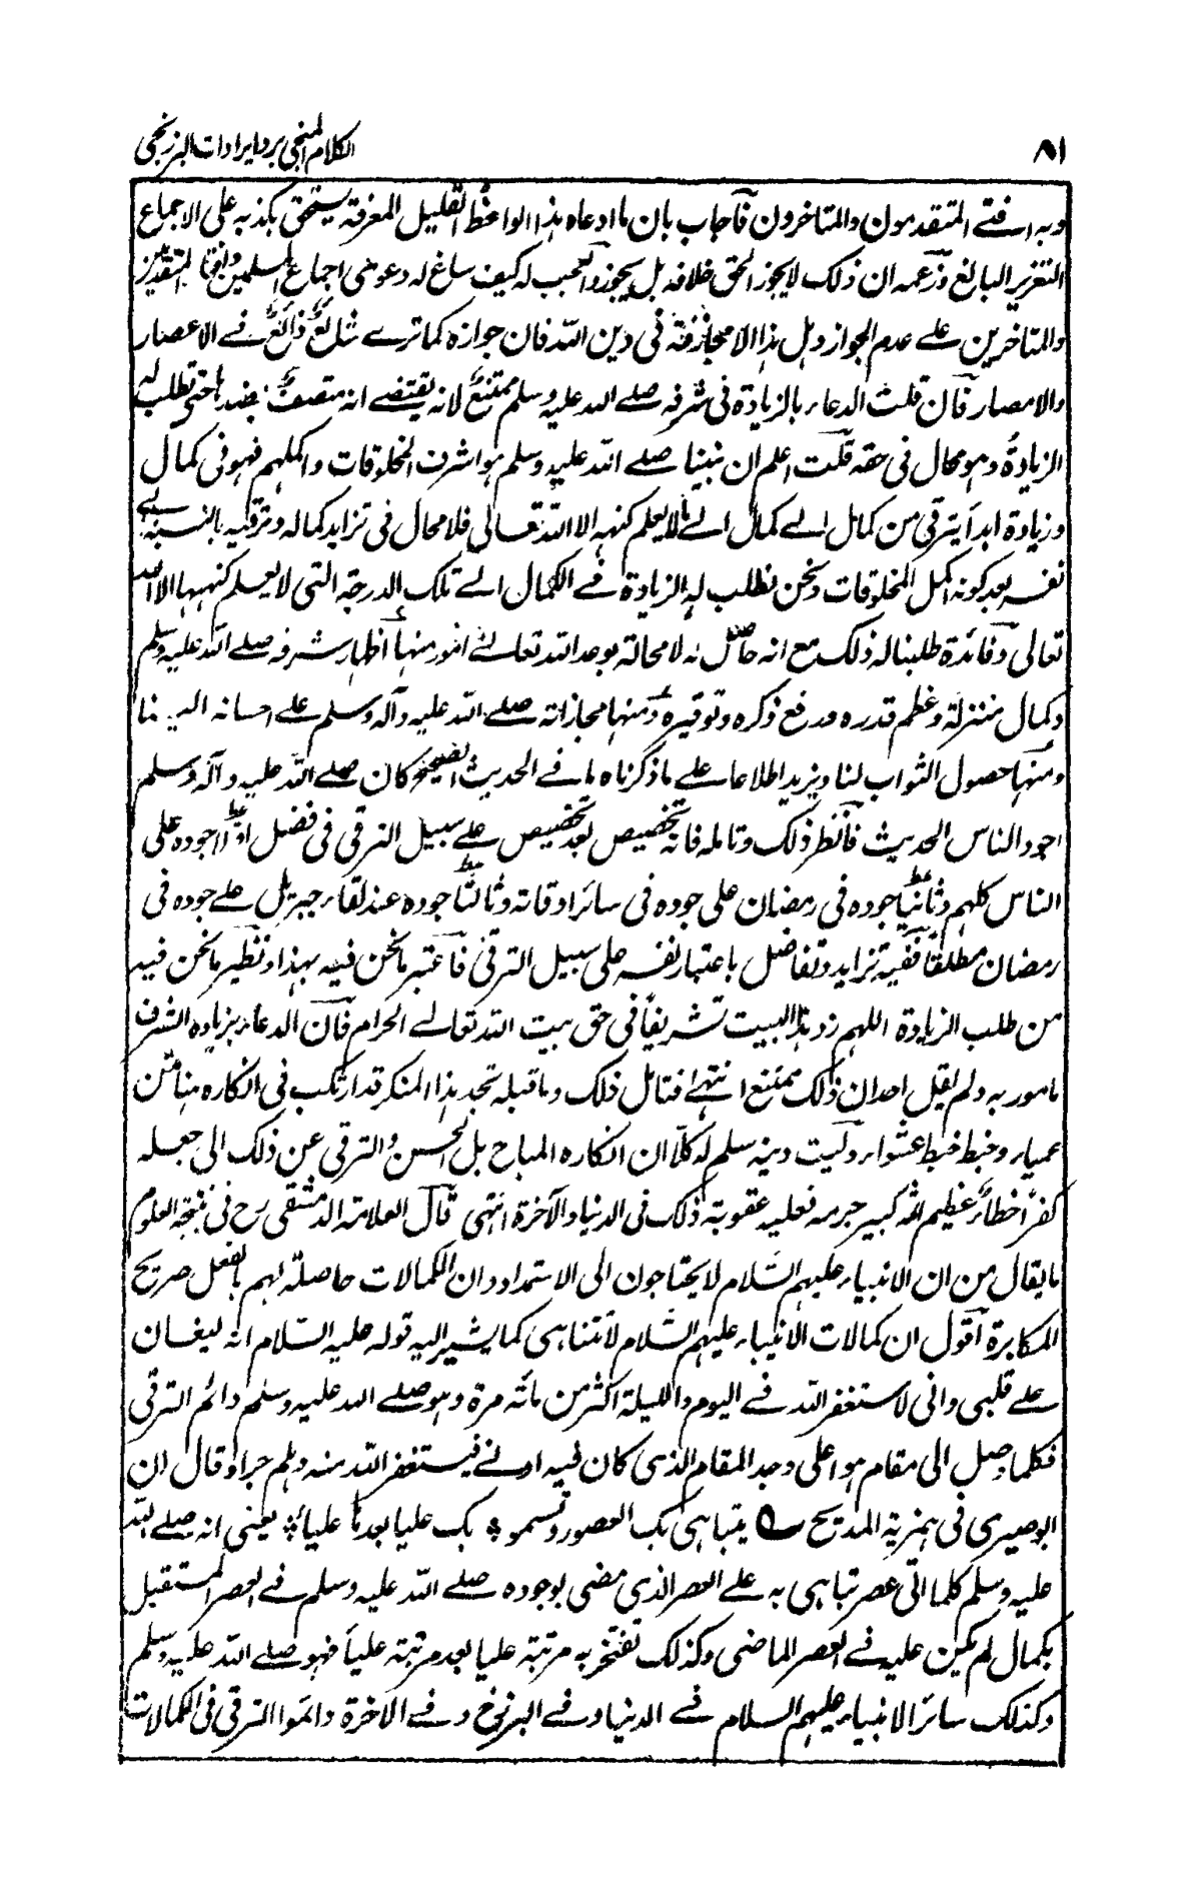 ٨١ الكلام المنجى برد ايرادات البرزنجى
وبه افتے المتقدمون والمتاخرون فآجاب بان ما ادعاه هذا الواعظ القليل المعرفة يستحق بكذبه على الاجماع
التعزير البالغ وزعمه ان ذلك لا يجوز الحق خلافه بل يجوز والعجب له كيف ساغ له دعوى اجماع المسلمين واتفاق المتقدمين
والمتاخرين علے عدم الجواز وهل هذا الا مجازفة فى دين الله فان جوازه كما ترے شائع ذائع فے الاعصار
والامصار فآن قلت الدعاء بالزيادة فى شرفه صلے الله عليه وسلم ممتنع لانه يقتضے انه متصف بضدها حتى تطلب له
الزيادة وهو محال فى حقه قلت اعلم ان نبينا صلے الله عليه وسلم هو اشرف المخلوقات واكملهم فهو فى كمال
وزيادة ابدا يترقى من كمال الے كمال الے ما لا يعلم كنهه الا الله تعالى فلا محال فى تزايد كماله وترقيه بالنسبة الے
نفسه بعد كونه اكمل المخلوقات ونحن نطلب له الزيادة فے الكمال الے تلك الدرجة التى لا يعلم كنهها الا الله
تعالى وفائدة طلبنا له ذلك مع انه حاصل له لا محالة بوعد الله تعالے امور منها اظهار شرفه صلے الله عليه وسلم
وكمال منزلة وعظم قدره ورفع ذكره وتوقيره ومنها مجازاته صلے الله عليه وآله وسلم علے احسانه الينا
ومنها حصول الثواب لنا ويزيد اطلاعا علے ما ذكرناه ما فے الحديث الصحيح كان صلے الله عليه وآله وسلم
اجود الناس الحديث فآنظر ذلك وتامله فانه تخصيص بعد تخصيص علے سبيل الترقى فى فضل اولا جوده على
الناس كلهم وثانيا جوده فى رمضان على جوده فى سائر اوقاته وثالثا جوده عند لقاء جبرئيل علے جوده فى
رمضان مطلقا ففيه تزايد وتفاضل باعتبار نفسه على سبيل الترقى فآعتبر ما نحن فيه بهذا ونظير ما نحن فيه
من طلب الزيادة اللهم زد هذا البيت تشريفا فى حق بيت الله تعالے الحرام فآن الدعاء بزيادة الشرف
مامور به ولم يقل احد ان ذلك ممتنع انتهے فتامل ذلك وما قبله تجد هذا المنكر قد ارتكب فى انكاره هذا متن
عمياء وخبط خبط عشواء وليت دينه سلم له كلا ان انكاره المباح بل الحسن والترقى عن ذلك الى جعله
كفرا خطاء عظيم اثمه كبير جرمه فعليه عقوبة ذلك فى الدنيا والآخرة انتهى قآل العلامة الدمشقى رح فى نتيجة العلوم
ما يقال من ان الانبياء عليهم السلام لا يحتاجون الى الاستمداد وان الكمالات حاصلة لهم بالفعل صريح
المكابرة آقول ان كمالات الانبياء عليهم السلام لا تتناهى كما يشير اليه قوله عليه السلام انه ليغان
علے قلبى وانى لاستغفر الله فے اليوم والليلة اكثر من مائة مرة وهو صلے الله عليه وسلم دائم الترقى
فكلما وصل الى مقام هو اعلى وجد المقام الذى كان فيه ادنے فيستغفر الله منه وهلم جرا وقال ان
البوصيرى فى همزية المديح ؎ يتباهى بك العصور وتسمو * بك عليا بعدها علياء * يعنى انه صلے الله
عليه وسلم كلما اتى عصر تباهى به علے العصر الذى مضى بوجوده صلے الله عليه وسلم فے العصر المستقبل
بكمال لم يكن عليه فے العصر الماضى وكذلك تفتخر به مرتبة عليا بعد مرتبة عليا فهو صلے الله عليه وسلم
وكذلك سائر الانبياء عليهم السلام فے الدنيا وفے البرزخ وفے الاخرة دائموا الترقى فى الكمالات